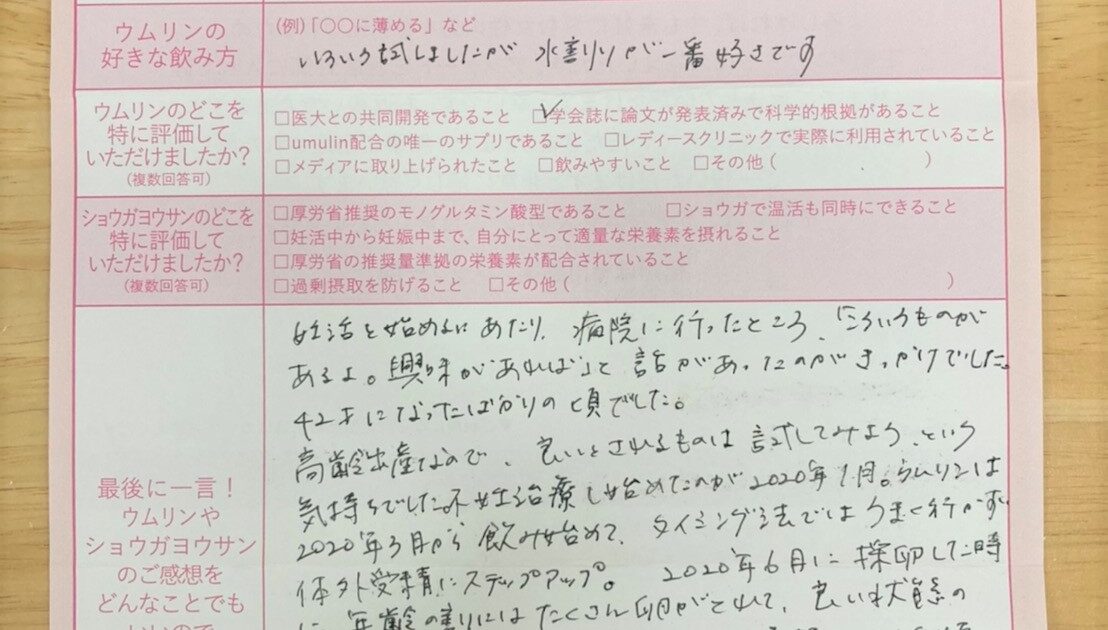 ウムリンの
好きな飲み方
(例)「○○に薄める」など
いろいろ試しましたが 水割りが一番好きです
ウムリンのどこを
特に評価して
いただけましたか?
(複数回答可)
□医大との共同開発であること ☑学会誌に論文が発表済みで科学的根拠があること
□umulin配合の唯一のサプリであること □レディースクリニックで実際に利用されていること
□メディアに取り上げられたこと □飲みやすいこと □その他( )
ショウガヨウサンのどこを
特に評価して
いただけましたか?
(複数回答可)
□厚労省推奨のモノグルタミン酸型であること □ショウガで温活も同時にできること
□妊活中から妊娠中まで、自分にとって適量な栄養素を摂れること
□厚労省の推奨量準拠の栄養素が配合されていること
□過剰摂取を防げること □その他( )
最後に一言!
ウムリンや
ショウガヨウサン
のご感想を
どんなことでも
妊活を始めるにあたり、病院に行ったところ、「こういうものが
あるよ。興味があれば」と話があったのがきっかけでした。
42才になったばかりの頃でした。
高齢出産なので、良いとされるものは試してみよう、という
気持ちでした。不妊治療し始めたのが2020年1月。ウムリンは
2020年3月から飲み始めて、タイミング法ではうまく行かず、
体外受精にステップアップ。 2020年6月に採卵した時
に、年齢の割にはたくさん卵がとれて、良い状態の